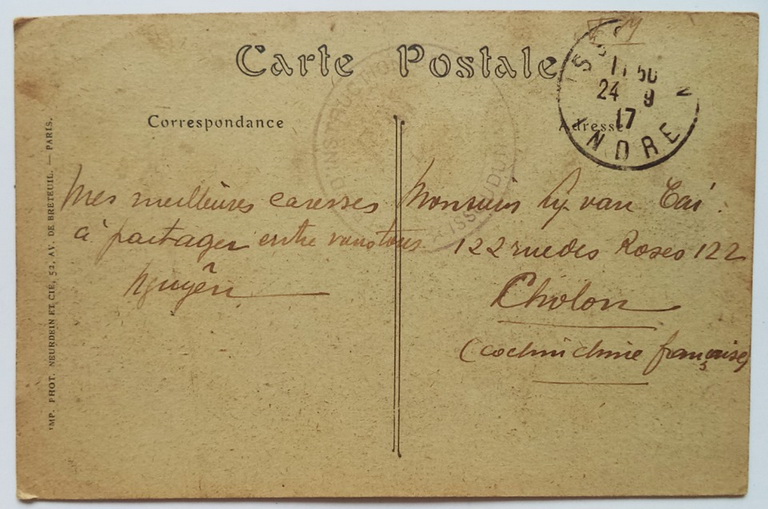 Carte Postale
Correspondance
Adresse
ISS
11 50
24 9
17
INDRE
Mes meilleures caresses
à partager entre vous tous
Nguyên
Monsieur Ly van Tai
122 rue des Roses 122
Cholon
(Cochinchine française)
IMP. PHOT. NEURDEIN ET CIE, 52, AV. DE BRETEUIL. — PARIS.